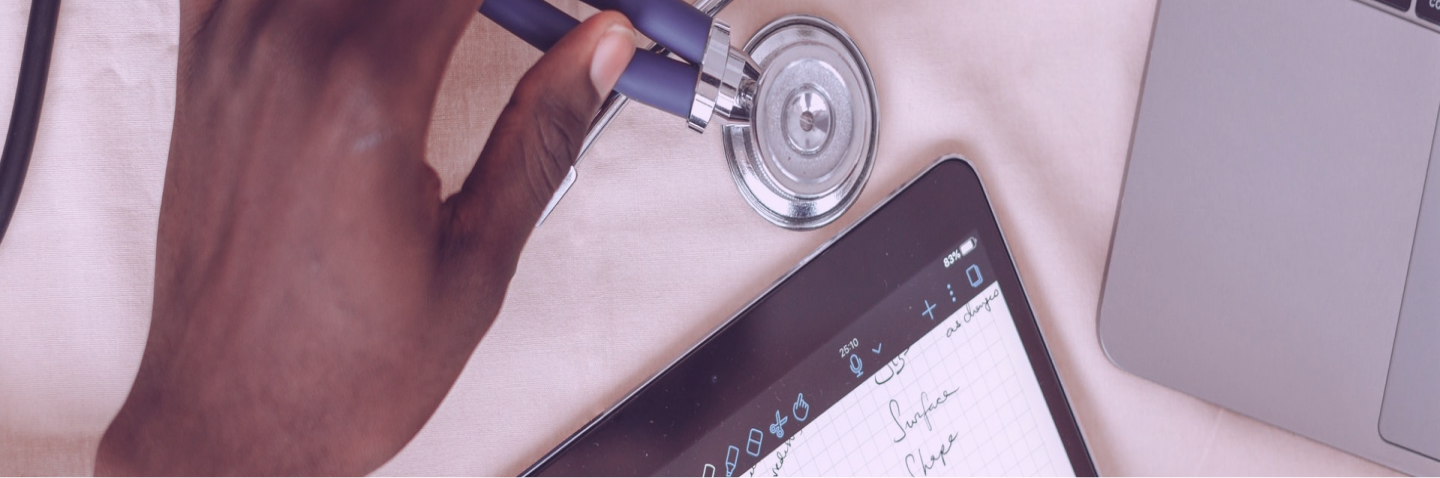 83%
25:10
as changes
Surface
Shape